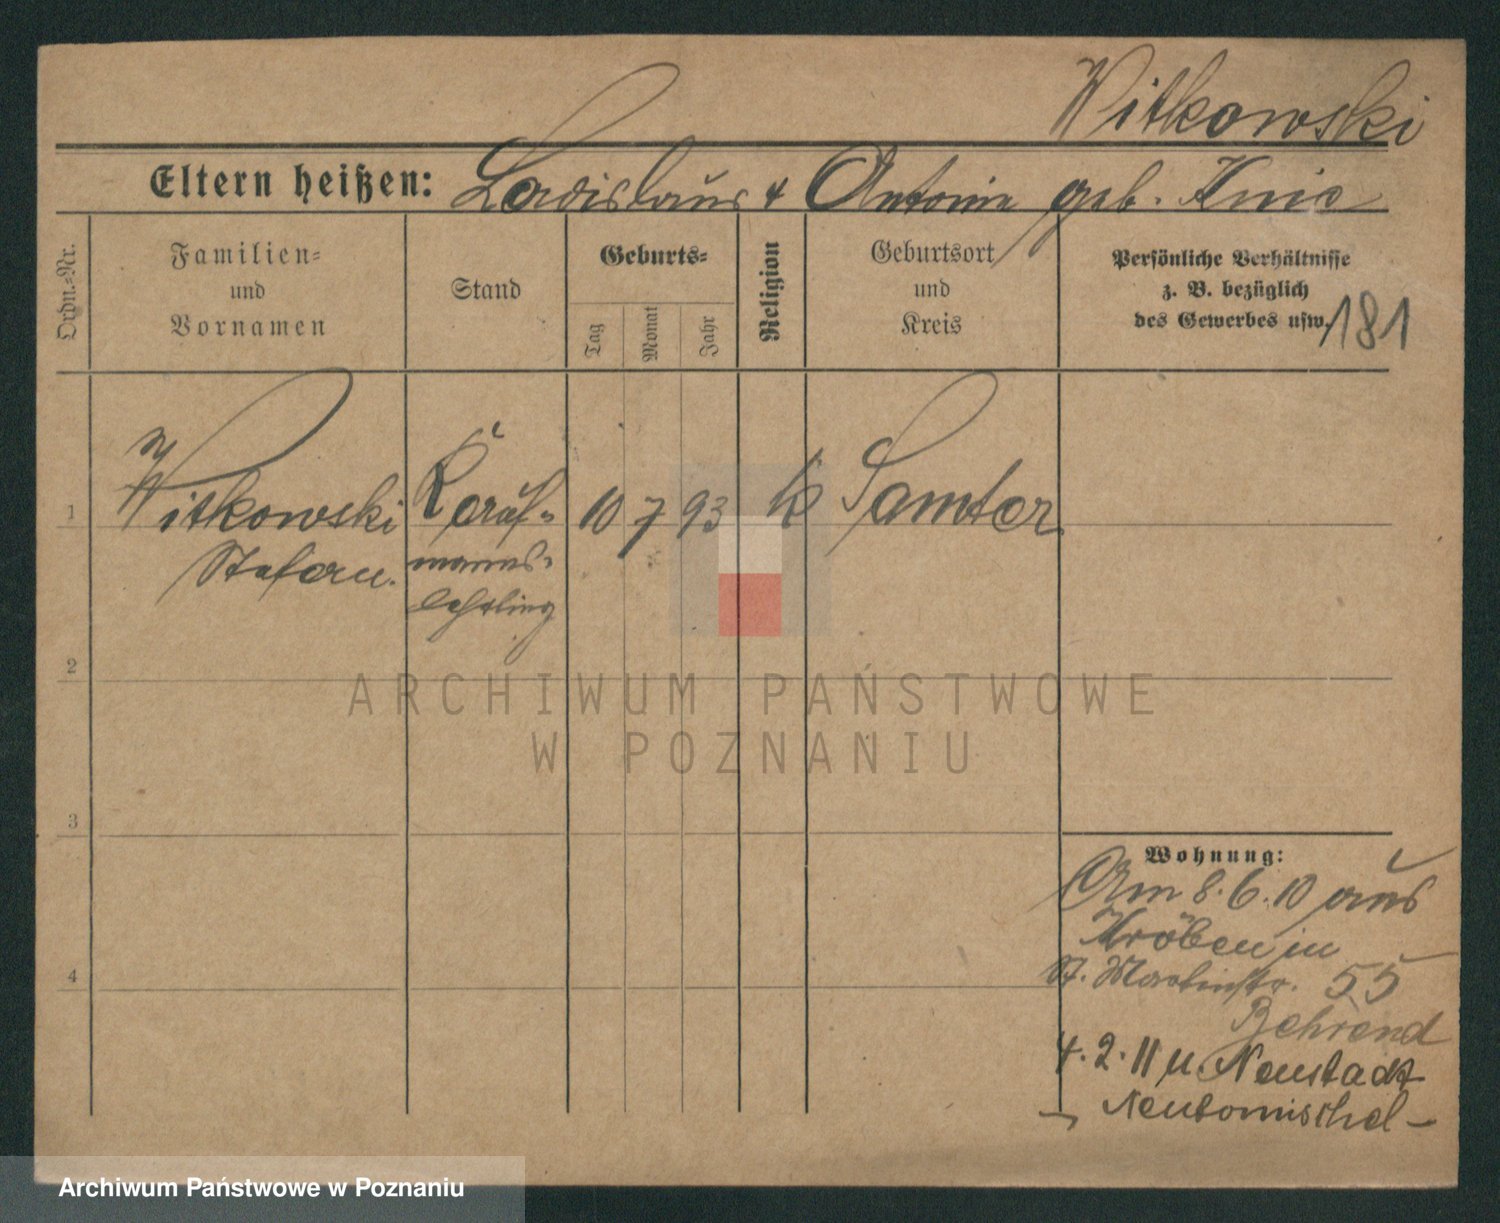 Witkowski
Eltern heißen: Ladislaus & Antonie geb. Knie
Ordn.-Nr.
Familien-
und
Vornamen
Stand
Geburts-
Tag
Monat
Jahr
Religion
Geburtsort
und
Kreis
Persönliche Verhältnisse
z. B. bezüglich
des Gewerbes usw.
181
1
Witkowski
Stefan.
Kauf-
manns-
lehrling
10 7 93
k
Samter
2
3
4
Wohnung:
Am 8.6.10 aus
Kröben in
St. Martinstr. 55
Behrend
4.2.11 u. Neustadt
Neutomischel
ARCHIWUM PAŃSTWOWE
W POZNANIU
Archiwum Państwowe w Poznaniu